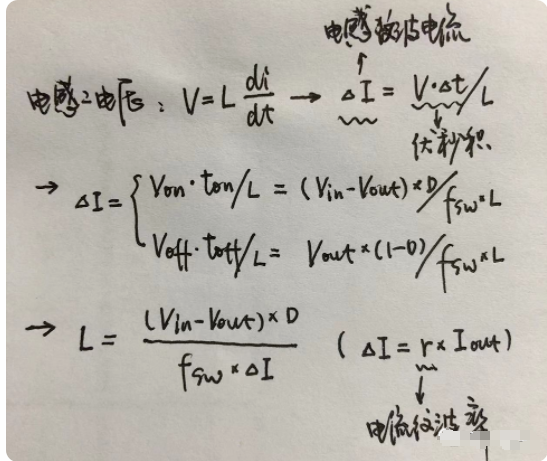 电感纹波电流
电感之电压: V = L di/dt → ΔI = V·Δt/L
伏秒积
→ ΔI = { Von·ton/L = (Vin-Vout)×D/fsw×L
Voff·toff/L = Vout×(1-D)/fsw×L
→ L = (Vin-Vout)×D / fsw×ΔI ( ΔI = r×Iout )
电流纹波率